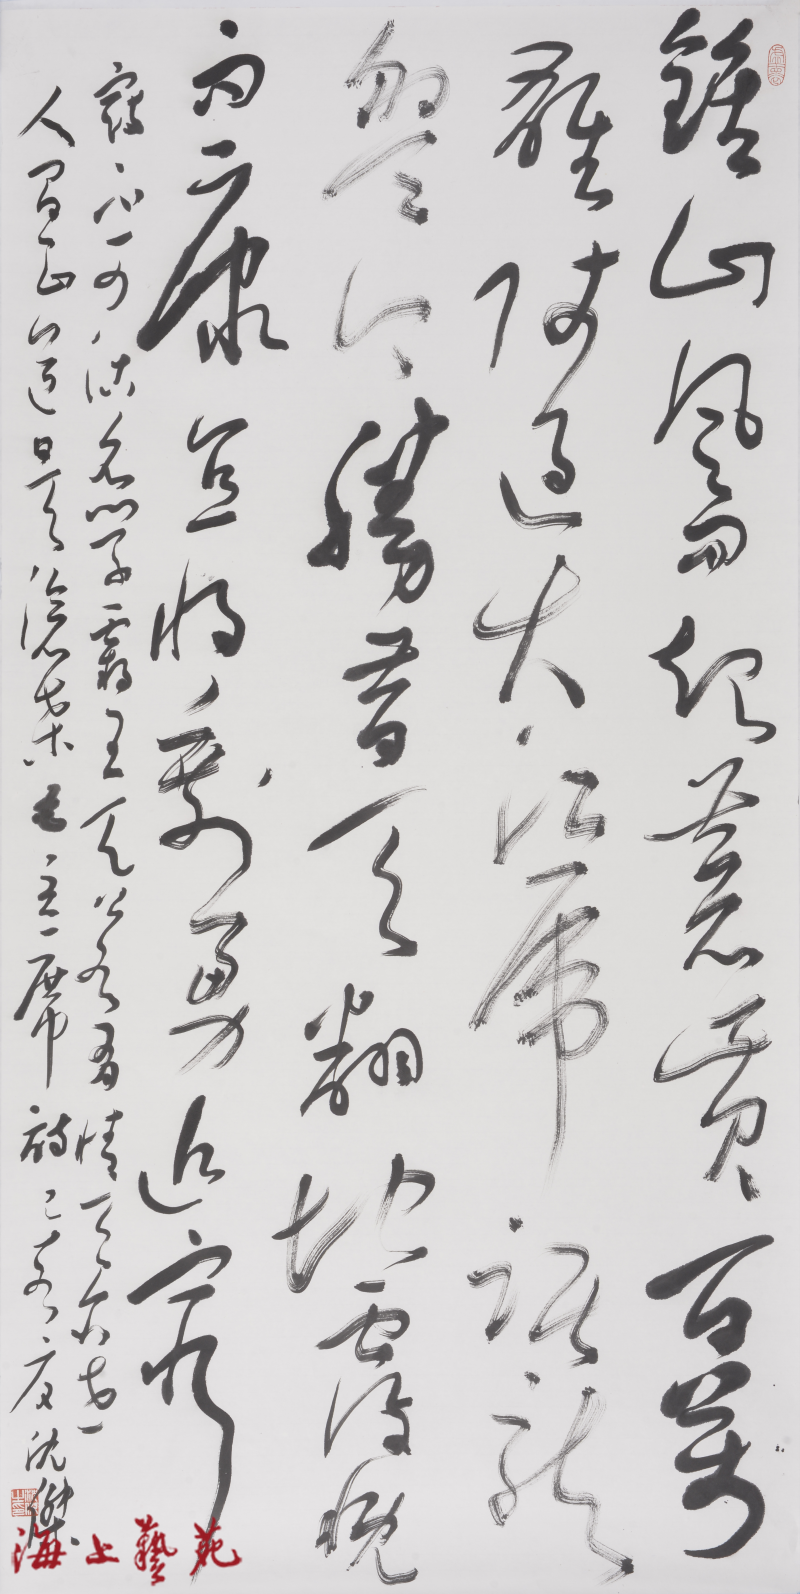 鍾山風雨起蒼黃百萬
雄师過大江虎踞龍
盤今勝昔天翻地覆慨
而慷宜将剩勇追窮
寇不可沽名學霸王天若有情天亦老
人間正道是滄桑毛主席詩己亥夏沈傑
海上藝苑